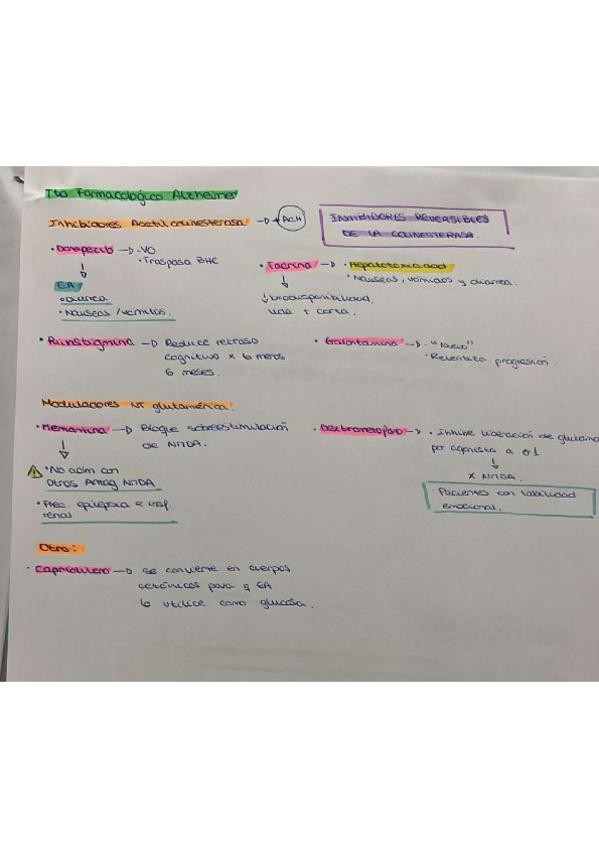 Tto Farmacológico Alzheimer
Inhibidores Acetilcolinesterasa → + ACH
INHIBIDORES REVERSIBLES
DE LA COLINESTERASA.
· Donepecilo → · VO
· Traspasa BHE
↓
EA
· Diarrea
· Nauseas / vómitos.
· Tacrina → · Hepatotoxicidad
· Nauseas, vómidos y diarrea.
↓
↓ biodisponibilidad,
vida + corta.
· Rivastigmina → Reduce retraso
cognitivo x 6 menos
6 meses.
· Galantamina → · "Nuevo"
· Ralentiza progresión.
Moduladores NT glutaménica:
· Memantina → Bloque sobreestimulación
de NMDA.
↓
⚠ · No adm con
otros Antag NMDA
· Prec. epilepsia e insf.
renal
· Dextrometorfano → · Inhibe liberación de glutama
por agonista a σ1
↓
X NMDA.
Pacientes con labilidad
emocional.
Otro:
· Capriolidero → se convierte en cuerpos
cetónicos para q EA
lo utilice como glucosa.